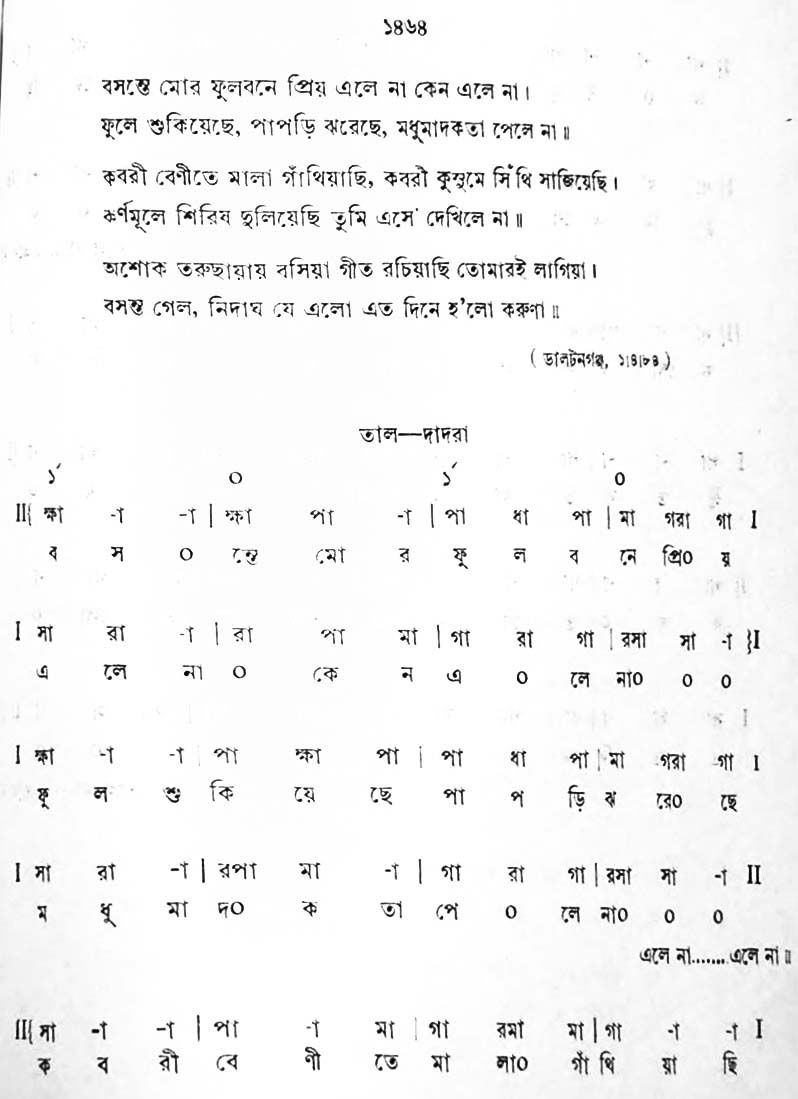 ১৪৬৪
বসন্তে মোর ফুলবনে প্রিয় এলে না কেন এলে না।
ফুলে শুকিয়েছে, পাপড়ি ঝরেছে, মধুমাদকতা পেলে না॥
কবরী বেণীতে মালা গাঁথিয়াছি, কবরী কুসুমে সিঁথি সাজিয়েছি।
কর্ণমূলে শিরিষ দুলিয়েছি তুমি এসে দেখিলে না॥
অশোক তরুছায়ায় বসিয়া গীত রচিয়াছি তোমারই লাগিয়া।
বসন্ত গেল, নিদাঘ যে এলো এত দিনে হ'লো করুণা॥
( ডালটনগঞ্জ, ১।৪।৮৪ )
তাল—দাদরা
১´ ০ ১´ ০
II{ ক্ষা -া -া | ক্ষা পা -া | পা ধা পা | মা গরা গা I
ব স ০ ন্তে মো র ফু ল ব নে প্রি০ য়
I সা রা -া | রা পা মা | গা রা গা | রসা সা -া }I
এ লে না ০ কে ন এ ০ লে না০ ০ ০
I ক্ষা -া -া | পা ক্ষা পা | পা ধা পা | মা গরা গা I
ফু ল শু কি য়ে ছে পা প ড়ি ঝ রে০ ছে
I সা রা -া | রপা মা -া | গা রা গা | রসা সা -া II
ম ধু মা দ০ ক তা পে ০ লে না০ ০ ০
এলে না.......এলে না॥
II{ সা -া -া | পা -া মা | গা রমা মা | গা -া -া I
ক ব রী বে ণী তে মা লা০ গাঁ থি য়া ছি